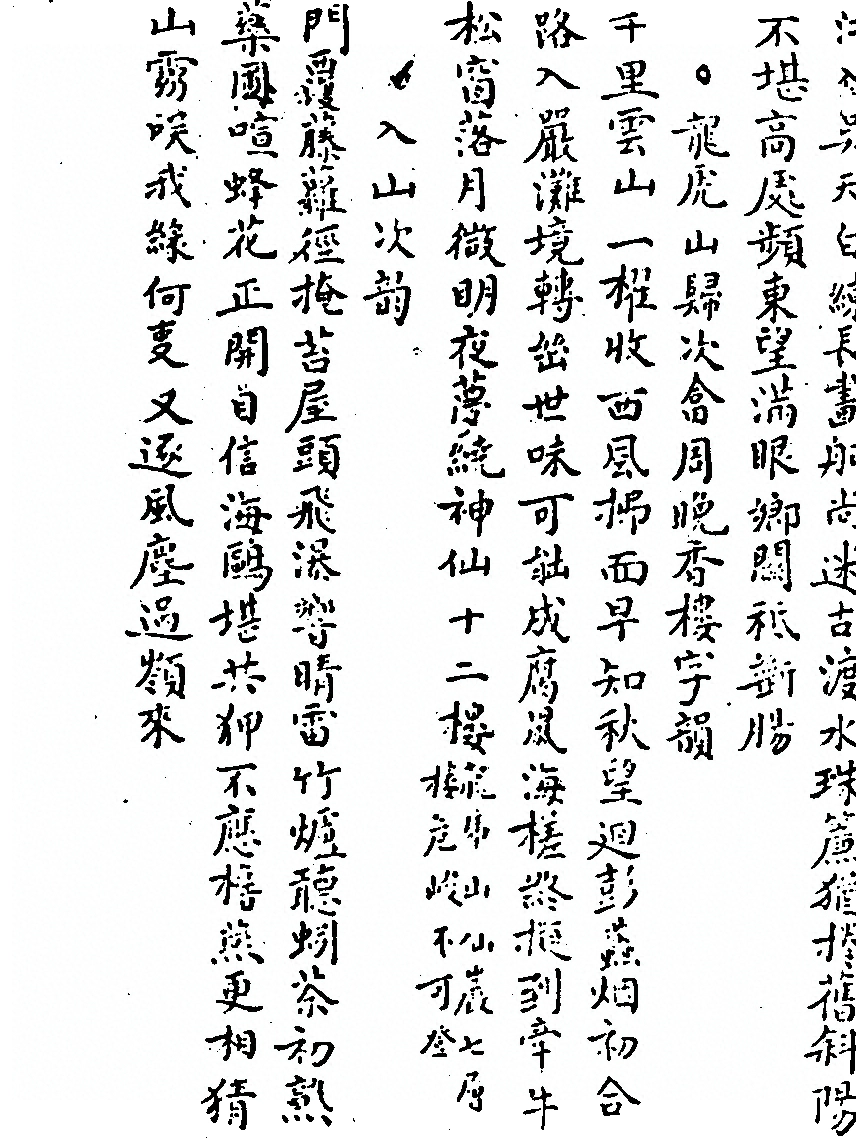 江入吳天白練長畫船尚迷古渡水珠簾猶捲舊斜陽
不堪高處頻東望滿眼鄉關祗斷腸
龍虎山歸次會周晚香樓字韻
千里雲山一櫂收西風拂面早知秋望迴彭蠡烟初合
路入嚴灘境轉幽世味可訨成腐鼠海槎終擬到牽牛
松窗落月微明夜夢繞神仙十二樓龍虎山仙巖七層樓危峻不可登
入山次韵
門覆藤蘿徑掩苔屋頭飛瀑響晴雷竹爐聽蚓茶初熟
藥圃喧蜂花正開自信海鷗堪共狎不應梧燕更相猜
山靈咲我緣何事又逐風塵過嶺來